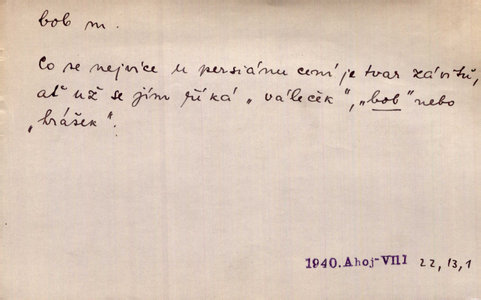 bob m.
Co se nejvíce u persiánu cení je tvar závitů,
ať už se jim říká „váleček“, „bob“ nebo
„hrášek“.
1940. Ahoj-VIII 22, 13, 1